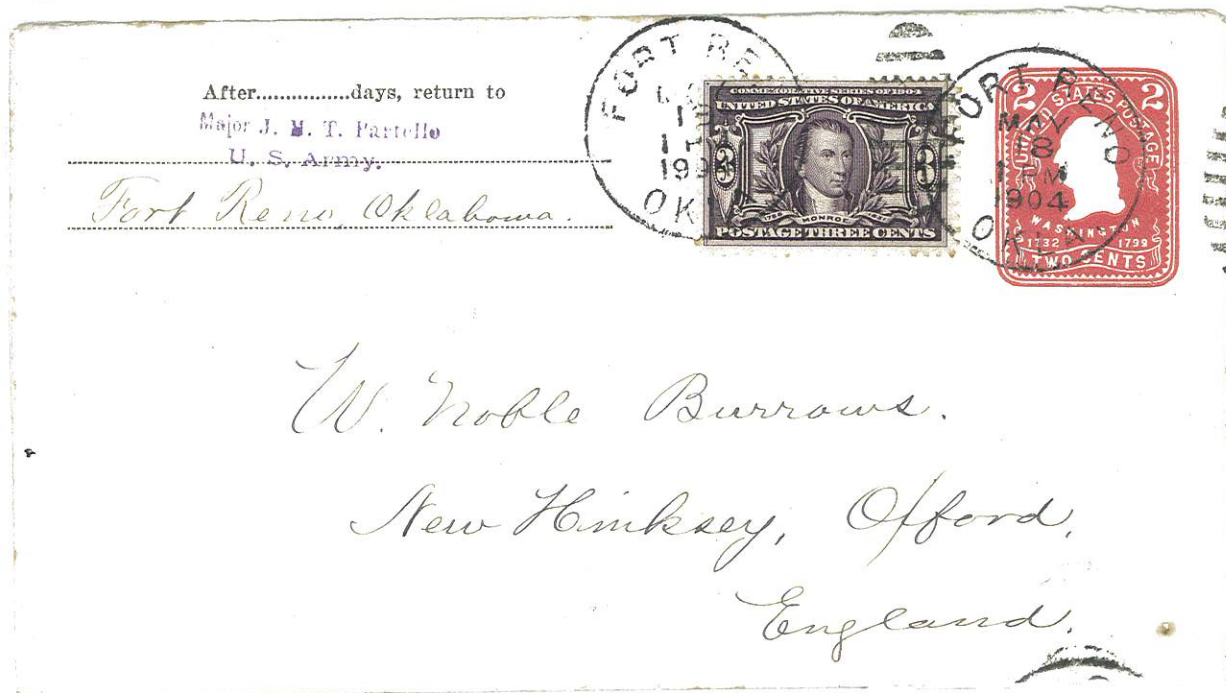 After...............days, return to
Major J. M. T. Partello
U. S. Army.
Fort Reno, Oklahoma.
FORT RE
1904
OK
COMMEMORATIVE SERIES OF 1904
UNITED STATES OF AMERICA
3 3
MONROE
POSTAGE THREE CENTS
FORT RENO
MAY
18
PM
1904
OKLA
2 2
UNITED STATES POSTAGE
WASHINGTON
1732 1799
TWO CENTS
W. Noble Burrows.
New Hinksey, Oxford,
England.